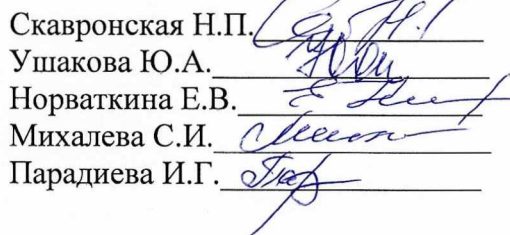 Скавронская Н.П.
Ушакова Ю.А.
Норваткина Е.В.
Михалева С.И.
Парадиева И.Г.